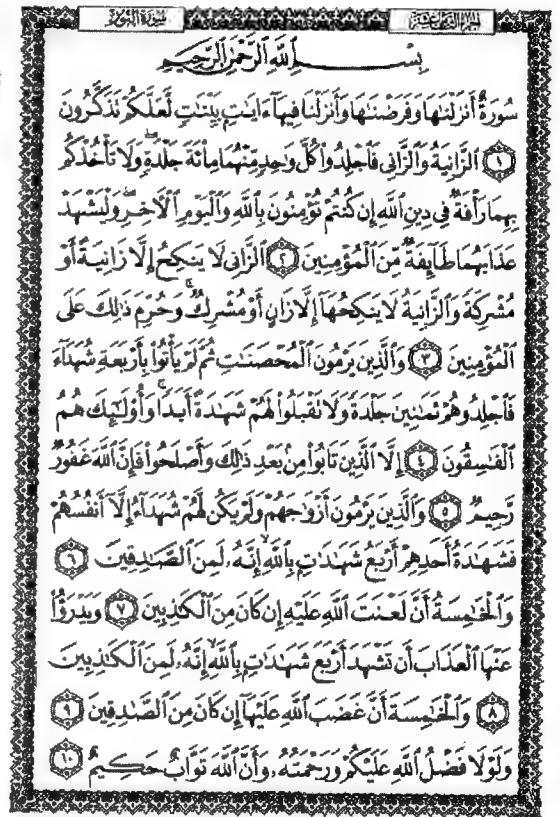 سُورَةُ النُّورِ
الجزء الثامن عشر
بِسْمِ ٱللَّهِ ٱلرَّحْمَٰنِ ٱلرَّحِيمِ
سُورَةٌ أَنزَلْنَٰهَا وَفَرَضْنَٰهَا وَأَنزَلْنَا فِيهَآ ءَايَٰتٍۭ بَيِّنَٰتٍ لَّعَلَّكُمْ تَذَكَّرُونَ
١ ٱلزَّانِيَةُ وَٱلزَّانِى فَٱجْلِدُوا۟ كُلَّ وَٰحِدٍ مِّنْهُمَا مِا۟ئَةَ جَلْدَةٍ ۖ وَلَا تَأْخُذْكُم
بِهِمَا رَأْفَةٌ فِى دِينِ ٱللَّهِ إِن كُنتُمْ تُؤْمِنُونَ بِٱللَّهِ وَٱلْيَوْمِ ٱلْءَاخِرِ ۖ وَلْيَشْهَدْ
عَذَابَهُمَا طَآئِفَةٌ مِّنَ ٱلْمُؤْمِنِينَ ٢ ٱلزَّانِى لَا يَنكِحُ إِلَّا زَانِيَةً أَوْ
مُشْرِكَةً وَٱلزَّانِيَةُ لَا يَنكِحُهَآ إِلَّا زَانٍ أَوْ مُشْرِكٌ ۚ وَحُرِّمَ ذَٰلِكَ عَلَى
ٱلْمُؤْمِنِينَ ٣ وَٱلَّذِينَ يَرْمُونَ ٱلْمُحْصَنَٰتِ ثُمَّ لَمْ يَأْتُوا۟ بِأَرْبَعَةِ شُهَدَآءَ
فَٱجْلِدُوهُمْ ثَمَٰنِينَ جَلْدَةً وَلَا تَقْبَلُوا۟ لَهُمْ شَهَٰدَةً أَبَدًا ۚ وَأُو۟لَٰٓئِكَ هُمُ
ٱلْفَٰسِقُونَ ٤ إِلَّا ٱلَّذِينَ تَابُوا۟ مِنۢ بَعْدِ ذَٰلِكَ وَأَصْلَحُوا۟ فَإِنَّ ٱللَّهَ غَفُورٌ
رَّحِيمٌ ٥ وَٱلَّذِينَ يَرْمُونَ أَزْوَٰجَهُمْ وَلَمْ يَكُن لَّهُمْ شُهَدَآءُ إِلَّآ أَنفُسُهُمْ
فَشَهَٰدَةُ أَحَدِهِمْ أَرْبَعُ شَهَٰدَٰتٍۭ بِٱللَّهِ ۙ إِنَّهُۥ لَمِنَ ٱلصَّٰدِقِينَ ٦
وَٱلْخَٰمِسَةُ أَنَّ لَعْنَتَ ٱللَّهِ عَلَيْهِ إِن كَانَ مِنَ ٱلْكَٰذِبِينَ ٧ وَيَدْرَؤُا۟
عَنْهَا ٱلْعَذَابَ أَن تَشْهَدَ أَرْبَعَ شَهَٰدَٰتٍۭ بِٱللَّهِ ۙ إِنَّهُۥ لَمِنَ ٱلْكَٰذِبِينَ
٨ وَٱلْخَٰمِسَةَ أَنَّ غَضَبَ ٱللَّهِ عَلَيْهَآ إِن كَانَ مِنَ ٱلصَّٰدِقِينَ ٩
وَلَوْلَا فَضْلُ ٱللَّهِ عَلَيْكُمْ وَرَحْمَتُهُۥ وَأَنَّ ٱللَّهَ تَوَّابٌ حَكِيمٌ ١٠